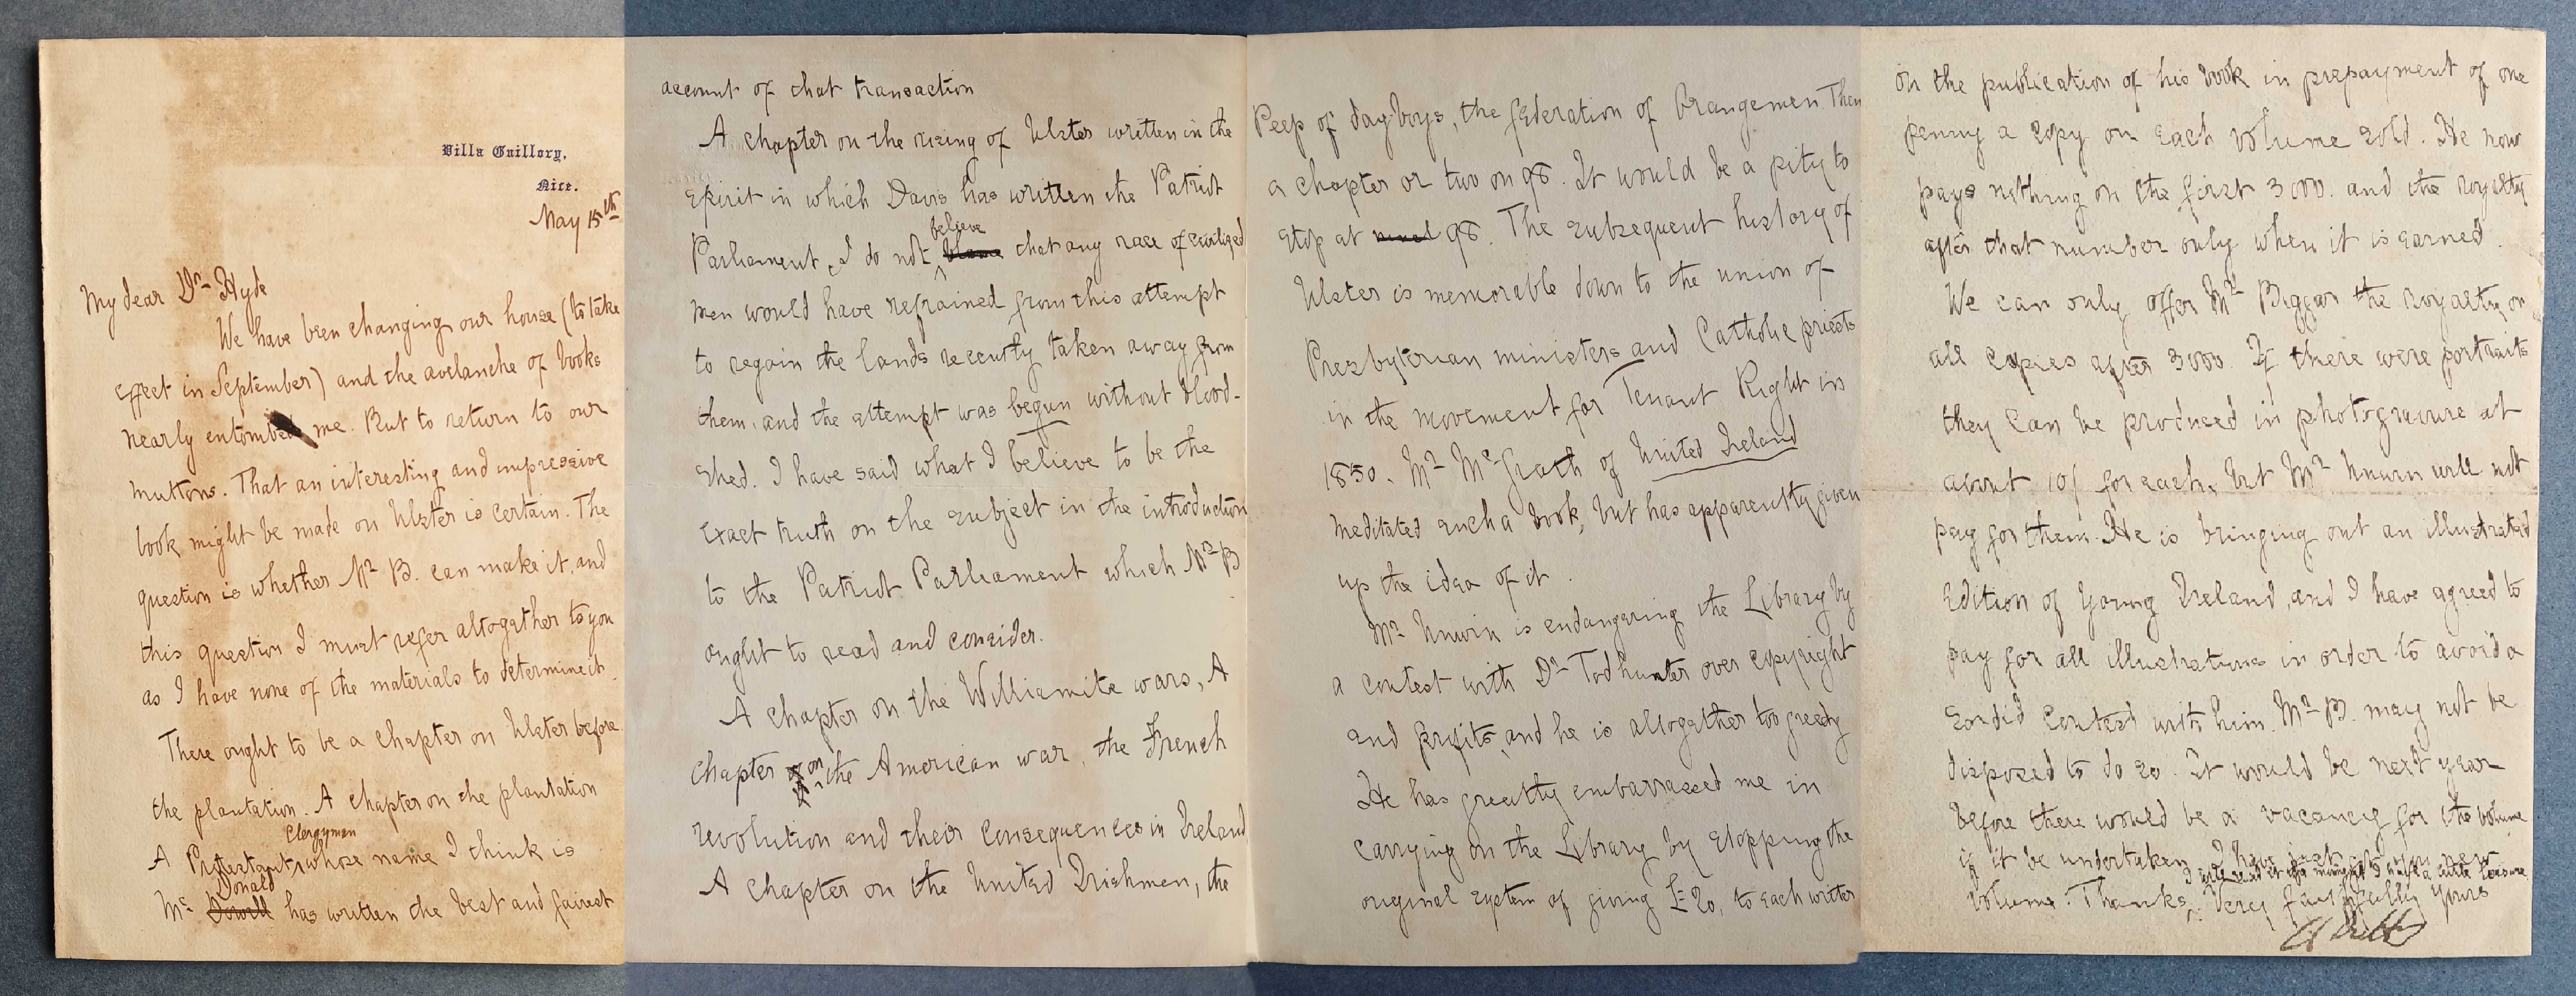 Villa Guillory,
Nice.
May 15th
My dear Dr Hyde
We have been changing our house (to take
effect in September) and the avalanche of books
nearly entombed me. But to return to our
muttons. That an interesting and impressive
book might be made on Ulster is certain. The
question is whether Mr B. can make it, and
this question I must refer altogether to you
as I have none of the materials to determine it.
There ought to be a chapter on Ulster before
the plantation. A chapter on the plantation
Clergyman
A Protestant whose name I think is
Donald
Mc Dowell has written the best and fairest
account of that transaction
A chapter on the rising of Ulster written in the
spirit in which Davis has written the Patriot
believe
Parliament, I do not that any race of civilized
men would have refrained from this attempt
to regain the lands recently taken away from
them, and the attempt was begun without blood-
shed. I have said what I believe to be the
exact truth on the subject in the introduction
to the Patriot Parliament which Mr B
ought to read and consider.
A chapter on the Williamite wars, A
chapter on the American war, the French
revolution and their consequences in Ireland
A chapter on the United Irishmen, the
Peep of day boys, the federation of Orangemen. Then
a chapter or two on 98. It would be a pity to
stop at 98. The subsequent history of
Ulster is memorable down to the union of
Presbyterian ministers and Catholic priests
in the movement for Tenant Right in
1850. Mr McGrath of United Ireland
meditated such a book, but has apparently given
up the idea of it.
Mr Unwin is endangering the Library by
a contest with Dr Todhunter over copyright
and profits, and he is altogether too greedy
He has greatly embarrassed me in
carrying on the Library by stopping the
original system of giving £20, to each writer
on the publication of his book in prepayment of one
penny a copy on each volume sold. He now
pays nothing on the first 3000. and the royalty
after that number only when it is earned.
We can only offer Mr Biggar the royalty on
all copies after 3000. If there were portraits
they can be produced in photogravure at
about 10/ for each, but Mr Unwin will not
pay for them. He is bringing out an illustrated
edition of Young Ireland, and I have agreed to
pay for all illustrations in order to avoid a
sordid contest with him. Mr B. may not be
disposed to do so. It would be next year
before there would be a vacancy for the volume
if it be undertaken. I have just got your new
I will read it the moment I have a little leisure
volume. Thanks. Very faithfully yours